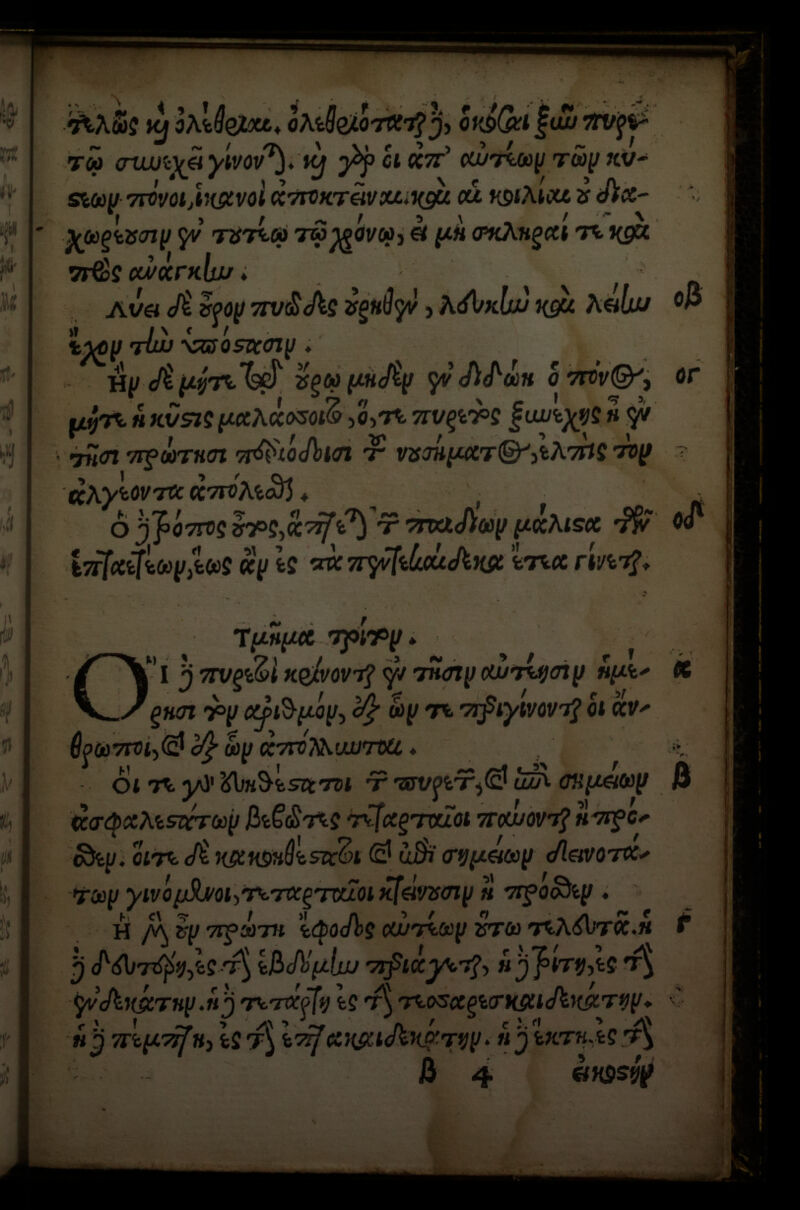 τελῶς καὶ ὀλέθριαι, ὀλεθριόταται δὲ, ὁκόσαι ξὺν πυρε-
τῷ συνεχεῖ γίνονται. καὶ γὰρ οἱ ἀπ' αὐτέων τῶν κύ-
στεων πόνοι, ἱκανοὶ ἀποκτεῖναι. καὶ αἱ κοιλίαι οὐ δια-
χωρέουσιν ἐν τουτέῳ τῷ χρόνῳ, εἰ μὴ σκληραί τε καὶ
πρὸς ἀνάγκην.
Λύει δὲ οὖρον πυῶδες οὐρηθὲν, λευκὴν καὶ λείην οβ
ἔχον τὴν ὑπόστασιν.
Ἢν δὲ μήτε τῷ οὔρῳ μηδὲν ἐν διδώη ὁ πόνος, ογ
μήτε ἡ κύστις μαλάσσοιτο, ὅ, τε πυρετὸς ξυνεχὴς ἢ ἐν
τῇσι πρώτησι περιόδοισι τοῦ νοσήματος, ἐλπὶς τὸν
ἀλγέοντα ἀπόλεσθαι.
Ὁ δὲ τρόπος οὗτος, ἅπτεται τῶν παιδίων μάλιστα τῶν οδ
ἑπταετέων, ἕως ἂν ἐς τὰ πεντεκαίδεκα ἔτεα γίνεται.
Τμῆμα τρίτον.
ΟἹ δὲ πυρετοὶ κρίνονται ἐν τῇσιν αὐτέησιν ἡμέ- α
ρησι τὸν ἀριθμόν, ἐξ ὧν τε περιγίνονται οἱ ἄν-
θρωποι, καὶ ἐξ ὧν ἀπόλλυνται.
Οἵ τε γὰρ εὐηθέστατοι τῶν πυρετῶν, καὶ ἐπὶ σημείων β
ἀσφαλεστάτων βεβῶτες τεταρταῖοι παύονται ἢ πρό-
σθεν. οἵτε δὲ κακοηθέστατοι καὶ ἐπὶ σημείων δεινοτά-
των γινόμενοι, τεταρταῖοι κτείνουσιν ἢ πρόσθεν.
Ἡ μὲν οὖν πρώτη ἔφοδος αὐτέων οὕτω τελευτᾶ. ἡ γ
δὲ δευτέρη, ἐς τὴν ἑβδόμην περιάγεται, ἡ δὲ τρίτη, ἐς τὴν
ἑνδεκάτην. ἡ δὲ τετάρτη ἐς τὴν τεσσαρεσκαιδεκάτην.
ἡ δὲ πέμπτη, ἐς τὴν ἑπτακαιδεκάτην. ἡ δὲ ἕκτη, ἐς τὴν
β 4 εἰκοστὴν